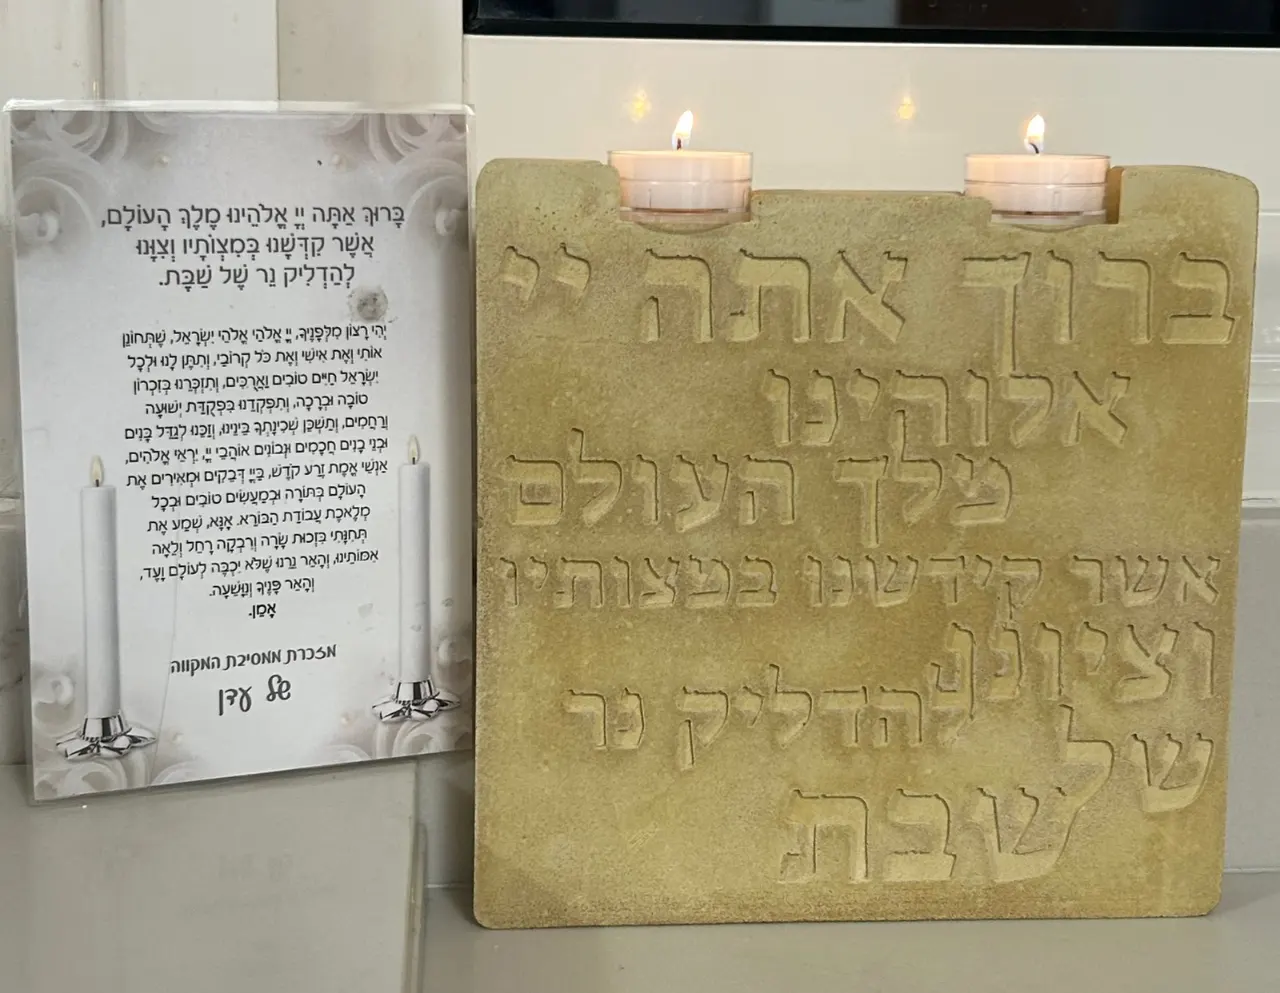 בָּרוּךְ אַתָּה יְיָ אֱלֹהֵינוּ מֶלֶךְ הָעוֹלָם,
אֲשֶׁר קִדְּשָׁנוּ בְּמִצְוֹתָיו וְצִוָּנוּ
לְהַדְלִיק נֵר שֶׁל שַׁבָּת.
יְהִי רָצוֹן מִלְּפָנֶיךָ, יְיָ אֱלֹהַי אֱלֹהֵי יִשְׂרָאֵל, שֶׁתְּחוֹנֵן
אוֹתִי וְאֶת אִישִׁי וְאֶת כֹּל קְרוֹבַי, וְתִתֵּן לָנוּ וּלְכָל
יִשְׂרָאֵל חַיִּים טוֹבִים וַאֲרֻכִּים, וְתִזְכְּרֵנוּ בְּזִכְרוֹן
טוֹבָה וּבְרָכָה, וְתִפְקְדֵנוּ בִּפְקֻדַּת יְשׁוּעָה
וְרַחֲמִים, וְתַשְׁכֵּן שְׁכִינָתְךָ בֵּינֵינוּ, וְזַכֵּנוּ לְגַדֵּל בָּנִים
וּבְנֵי בָנִים חֲכָמִים וּנְבוֹנִים אוֹהֲבֵי יְיָ, יִרְאֵי אֱלֹהִים,
אַנְשֵׁי אֱמֶת זֶרַע קֹדֶשׁ, בַּיְיָ דְּבֵקִים וּמְאִירִים אֶת
הָעוֹלָם בְּתּוֹרָה וּבְמַעֲשִׂים טוֹבִים וּבְכָל
מְלֶאכֶת עֲבוֹדַת הַבּוֹרֵא. אָנָּא, שְׁמַע אֶת
תְּחִנָּתִי בִּזְכוּת שָׂרָה וְרִבְקָה רָחֵל וְלֵאָה
אִמּוֹתֵינוּ, וְהָאֵר נֵרֵנוּ שֶׁלֹּא יִכְבֶּה לְעוֹלָם וָעֶד,
וְהָאֵר פָּנֶיךָ וְנִוָּשֵׁעָה.
אָמֵן.
מזכרת ממסיבת המקווה
של עדן
ברוך אתה יי
אלוהינו
מלך העולם
אשר קידשנו במצותיו
וציונו
להדליק נר
של
שבת